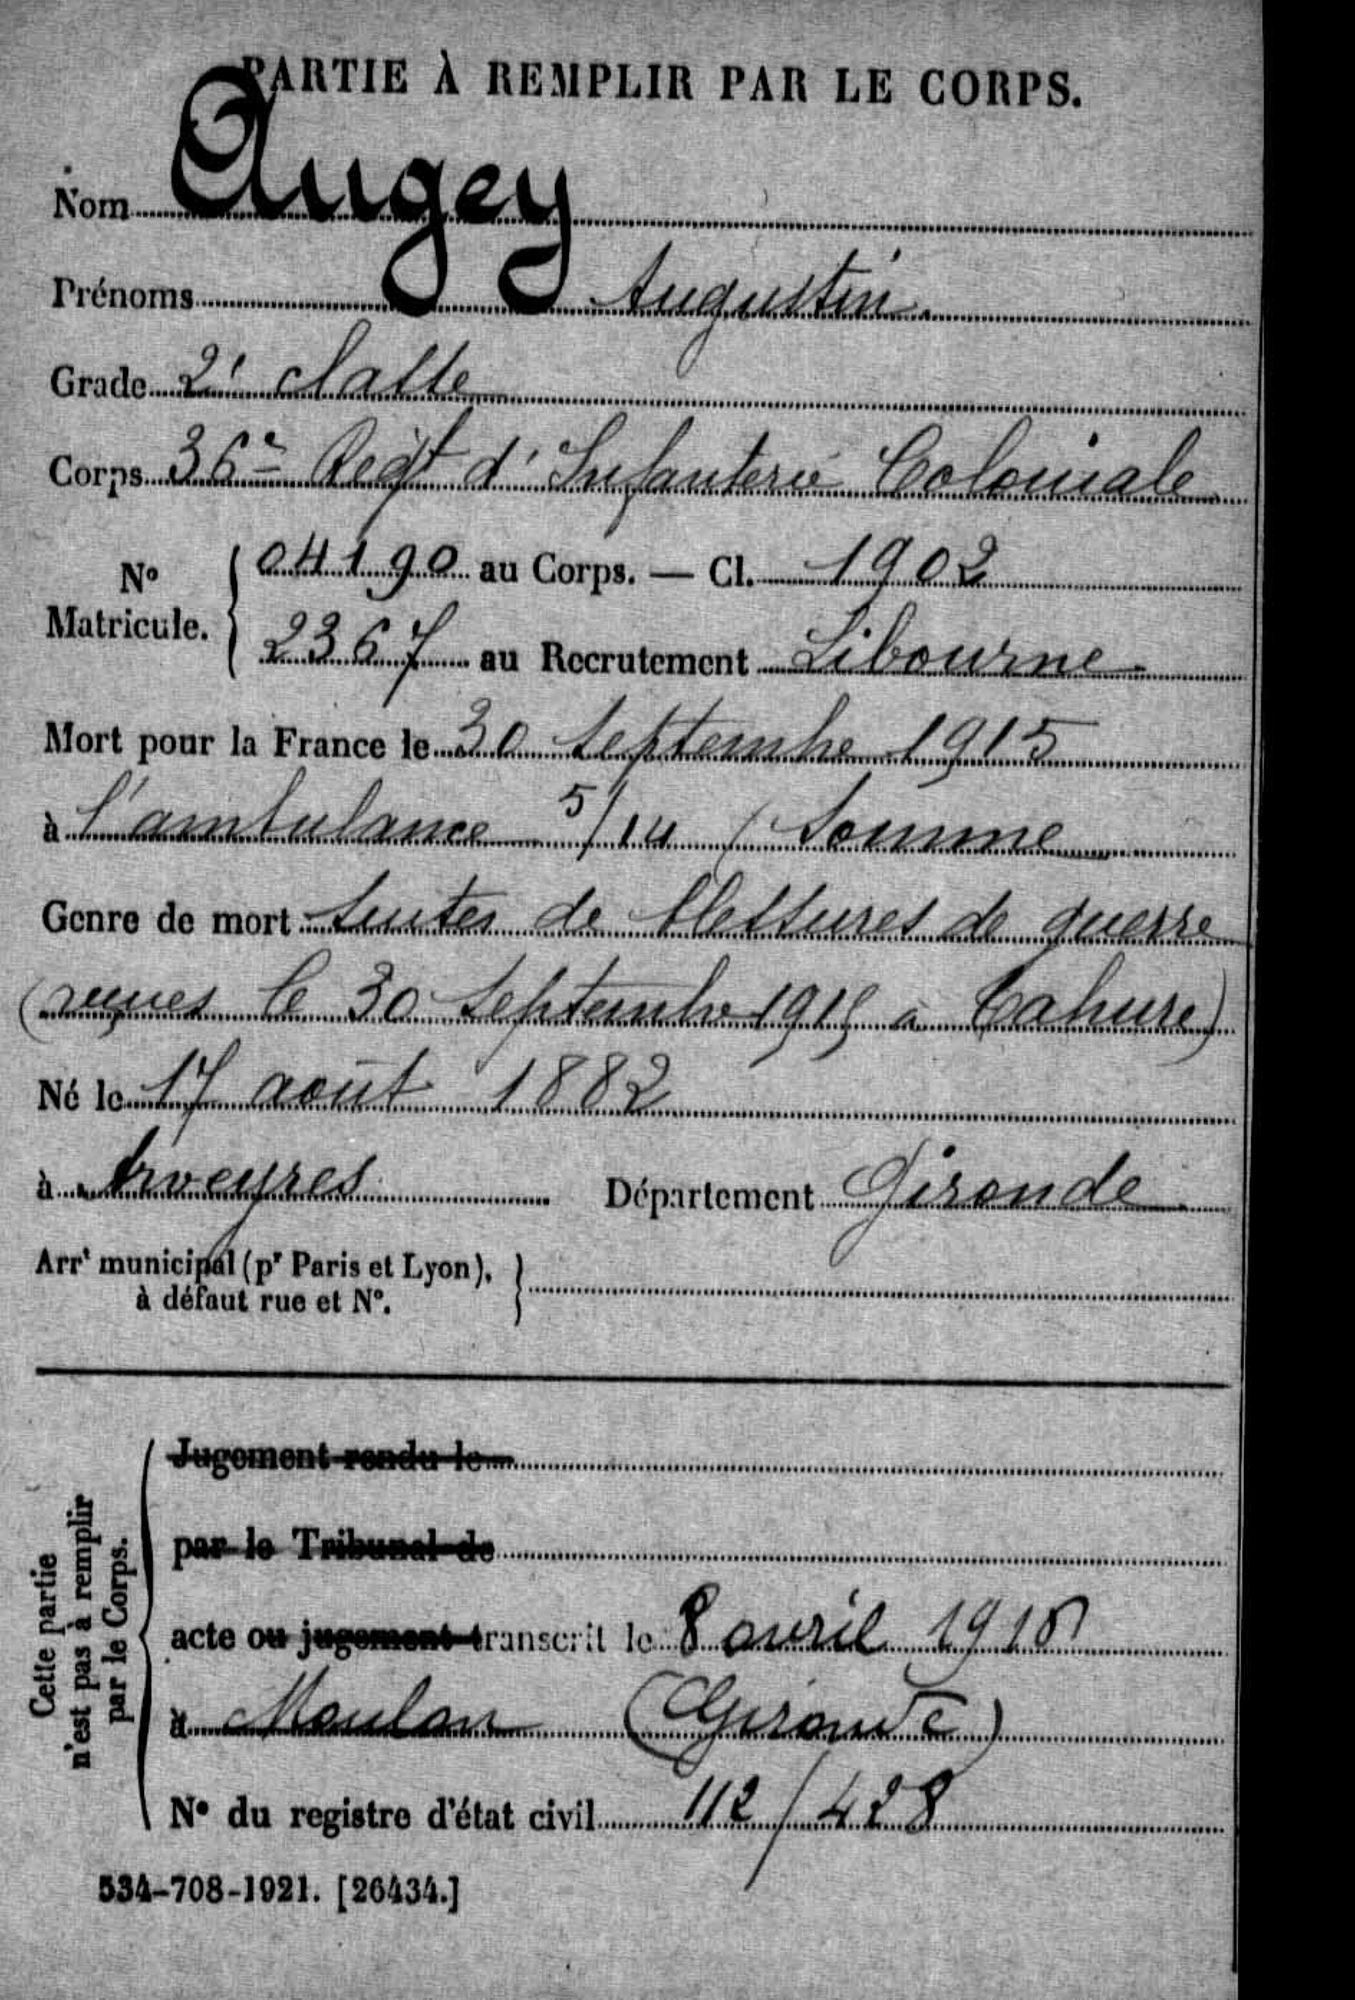 PARTIE À REMPLIR PAR LE CORPS.
Nom Augey
Prénoms Augustin.
Grade 2e classe
Corps 36e Regt d'Infanterie Coloniale
No Matricule. 04190 au Corps. — Cl. 1902
2367 au Recrutement Libourne
Mort pour la France le 30 Septembre 1915
à l'ambulance 5/14 (Somme
Genre de mort Suites de blessures de guerre
(reçues le 30 Septembre 1915 à Tahure)
Né le 17 août 1882
à Arveyres Département Gironde
Arrt municipal (pr Paris et Lyon),
à défaut rue et No.
Cette partie
n'est pas à remplir
par le Corps.
Jugement rendu le
par le Tribunal de
acte ou jugement transcrit le 8 avril 1918
à Moulon (Gironde)
No du registre d'état civil 112/428
534-708-1921. [26434.]